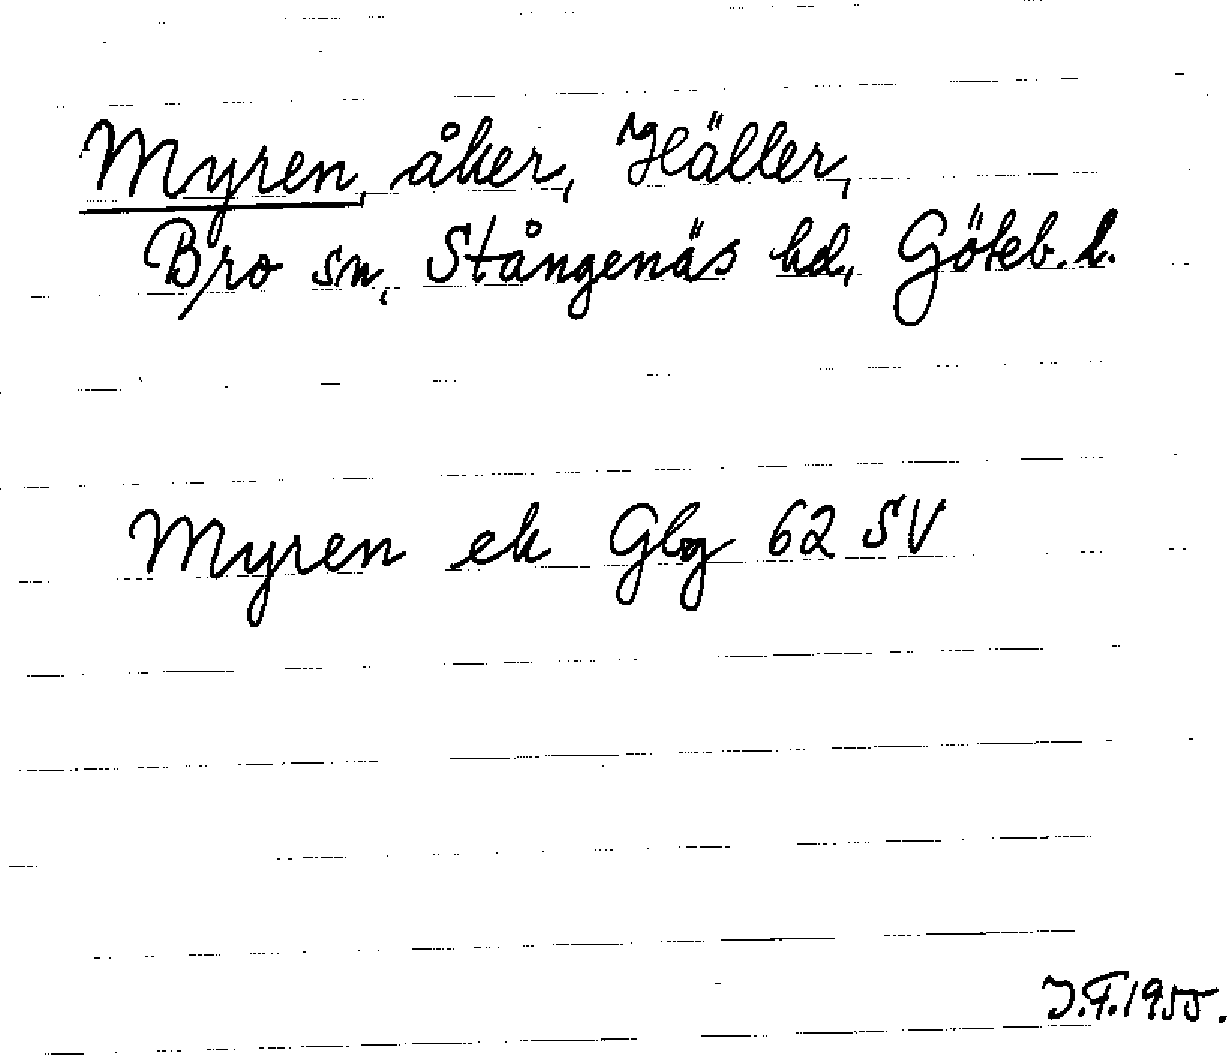 Myren, åker, Häller,
Bro sn, Stångenäs hd, Göteb. l.
Myren ek Gbg 62 SV
J.F.1955.